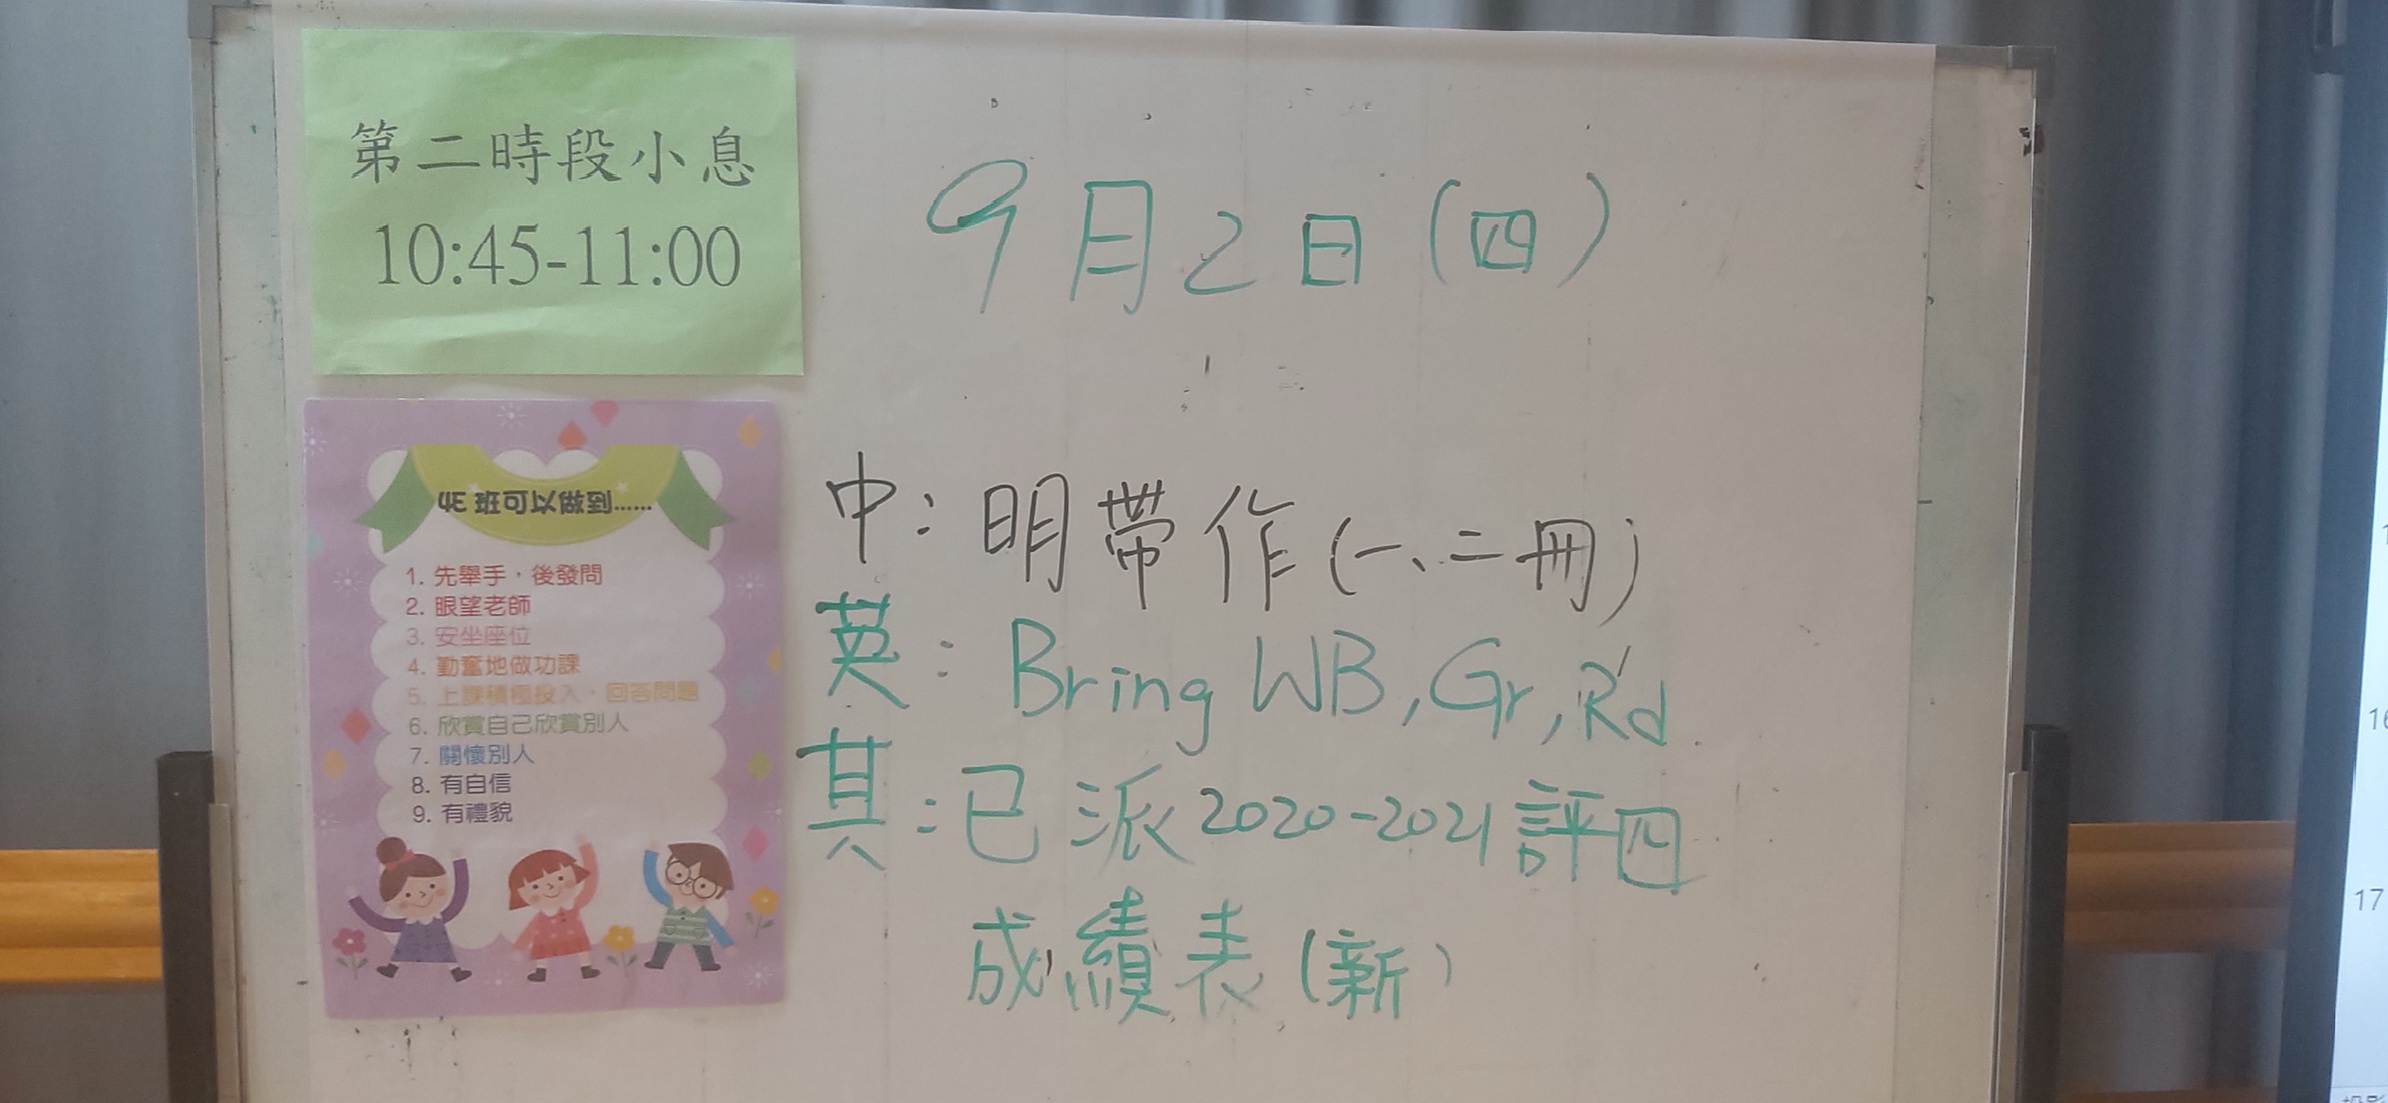 第二時段小息
10:45-11:00
9月2日(四)
4E 班可以做到......
1. 先舉手，後發問
2. 眼望老師
3. 安坐座位
4. 勤奮地做功課
5. 上課積極投入，回答問題
6. 欣賞自己欣賞別人
7. 關懷別人
8. 有自信
9. 有禮貌
中：明帶作(一、二冊)
英：Bring WB, Gr, Rd
其：已派2020-2021評四
成績表(新)
16
17